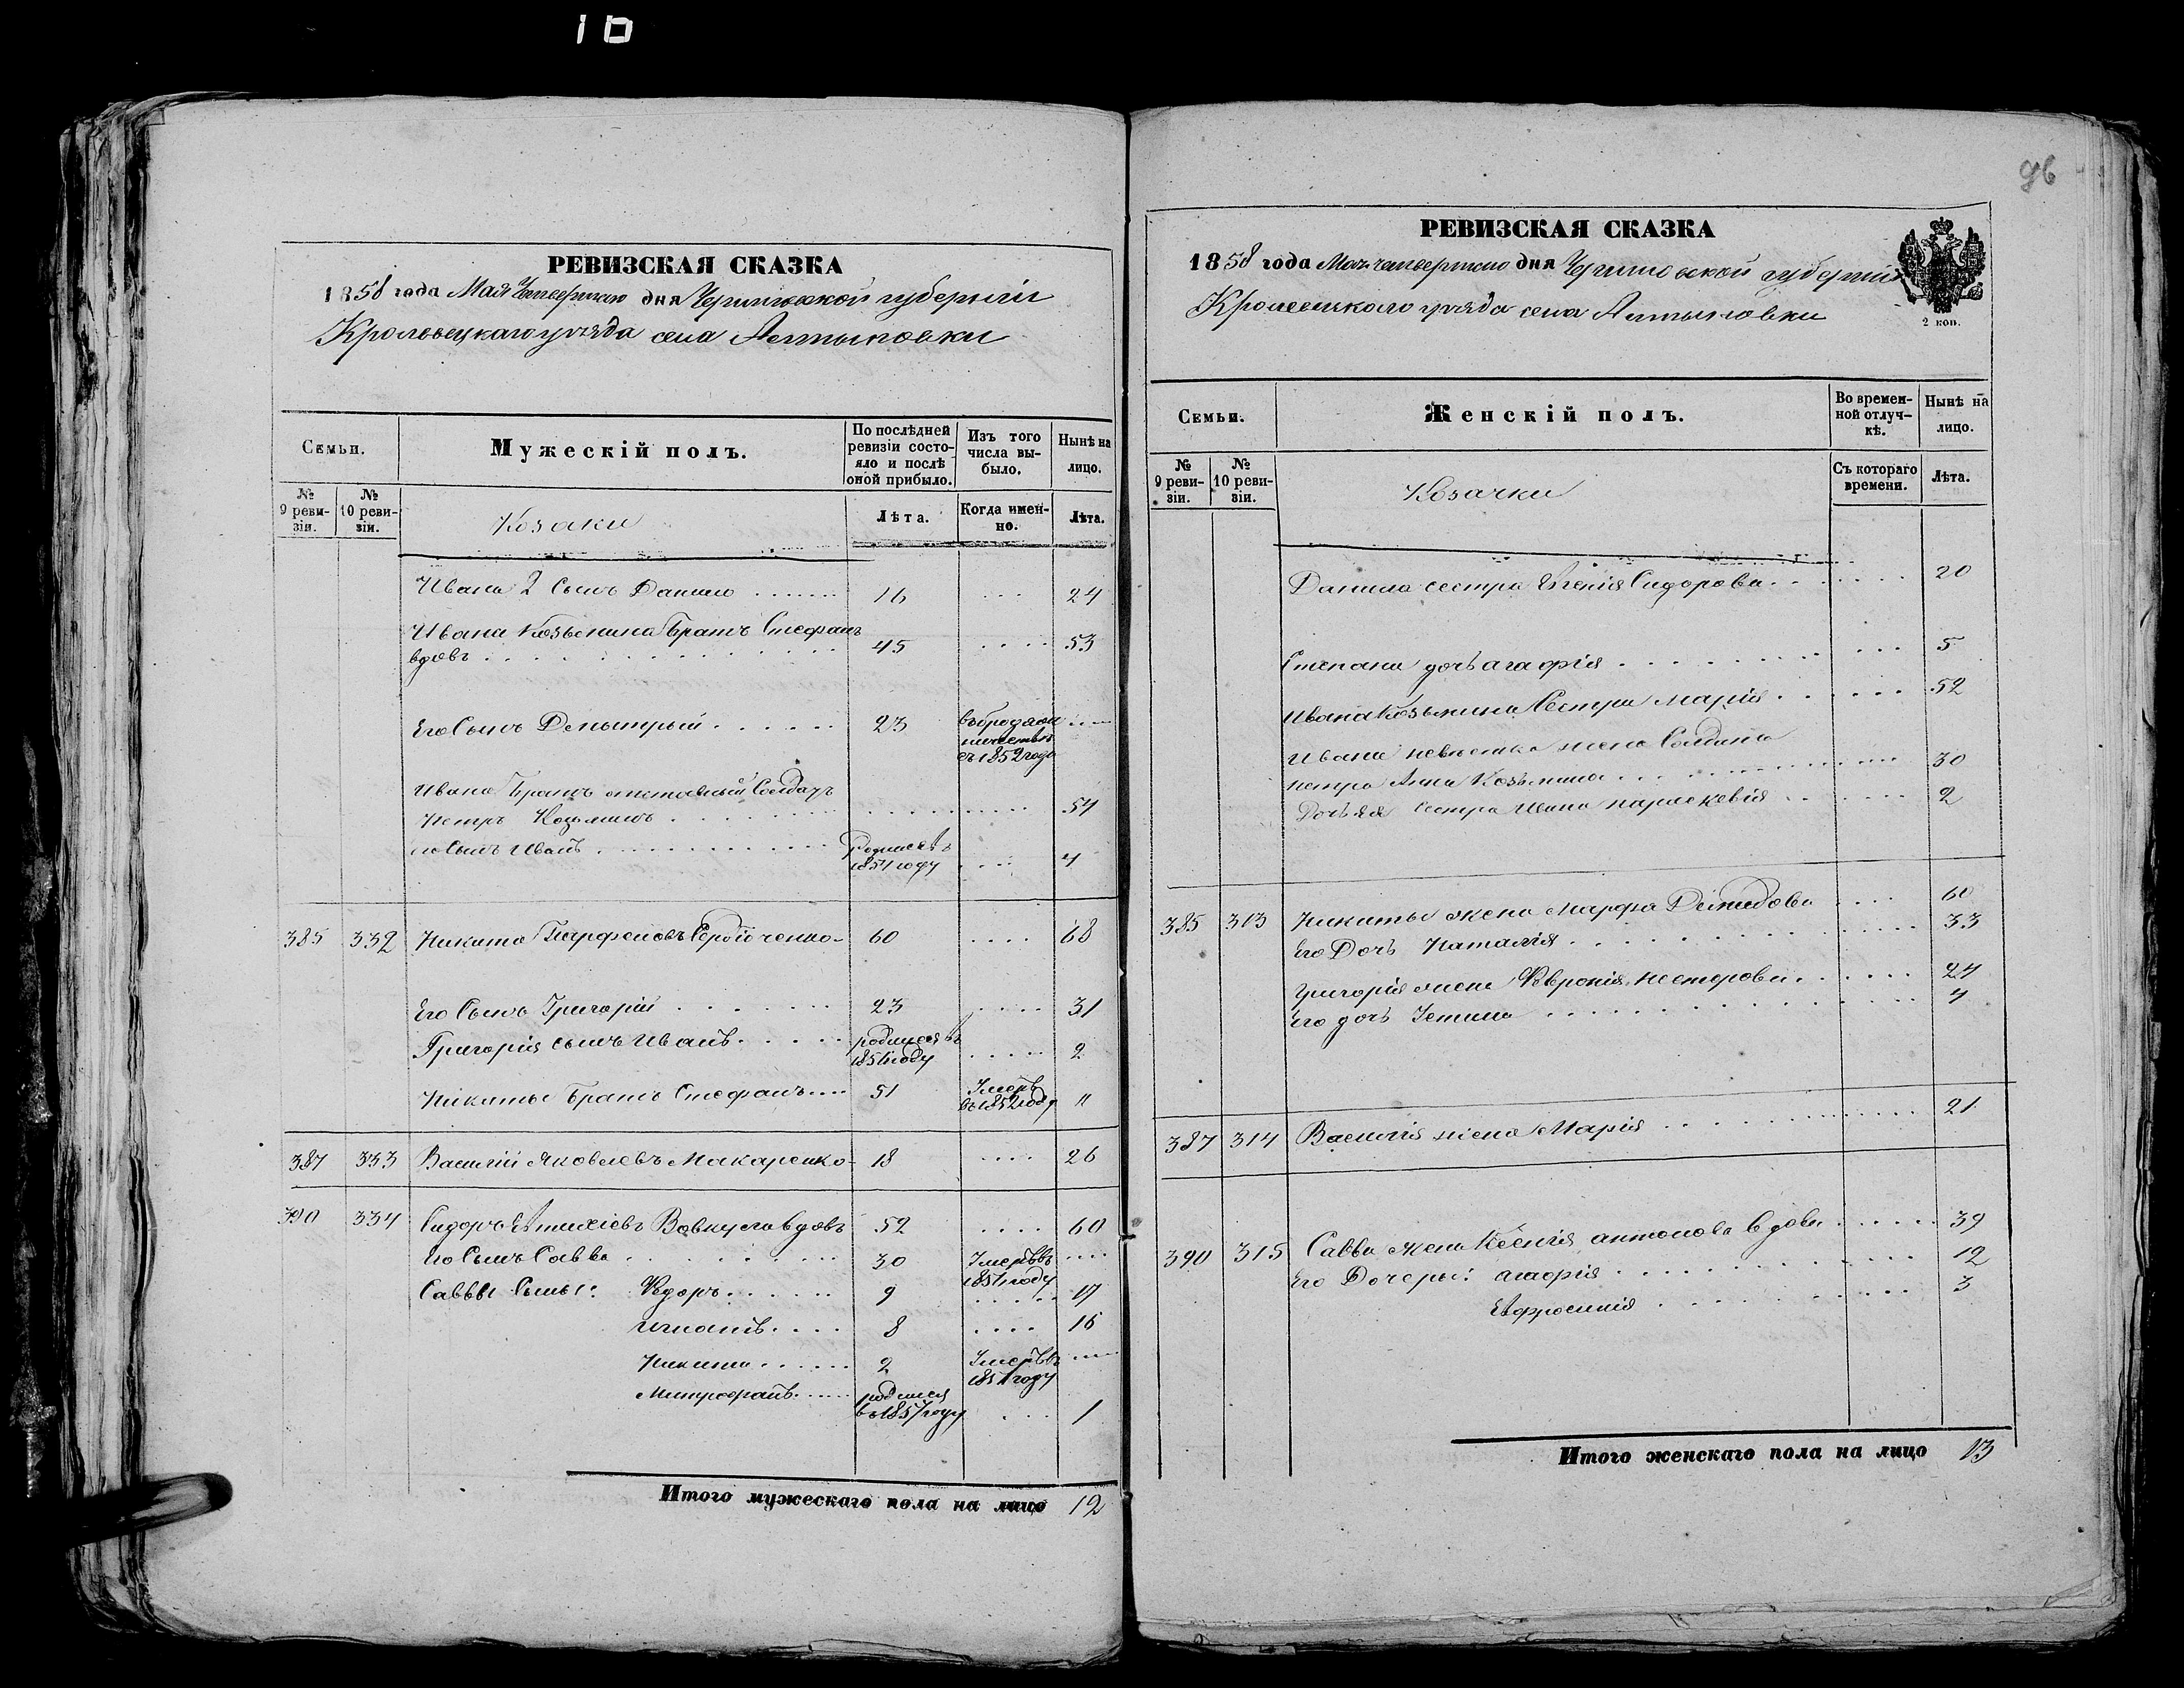 16
РЕВИЗСКАЯ СКАЗКА
1858 года Мая Четвертаго дня Черниговской губерніи
Кролевецкаго уезда села Алтыновки
Семьи.
Мужескій полъ.
По послѣдней ревизіи состояло и послѣ оной прибыло.
Изъ того числа выбыло.
Нынѣ на лицо.
№ 9 ревизіи.
№ 10 ревизіи.
Козаки
Лѣта.
Когда именно.
Лѣта.
Ивана 2 Сынъ Данило 16 24
Ивана Козьмина Братъ Стефанъ
вдовъ 45 53
Его Сынъ Демытрый 23 въ бродяжничествѣ съ 1852 года
Ивана Братъ отставный Солдатъ
Петръ Козьминъ 54
его Сынъ Иванъ Родился въ 1854 году 4
385 332 Никита Парфеновъ Сердюченко 60 68
Его Сынъ Григорій 23 31
Григорія сынъ Иванъ родился въ 1856 году 2
Никиты Братъ Стефанъ 51 Умеръ въ 1852 году "
387 333 Василий Яковлевъ Макаренко 18 26
390 334 Сидоръ Вовкула вдовъ 52 60
Его Сынъ Савва 30 Умеръ въ 1857 году
Саввы Сыны: Федоръ 9 17
Игнатъ 8 16
Никита 2 Умеръ въ 1851 году
Митрофанъ родился въ 1857 году 1
Итого мужескаго пола на лицо 12
96
РЕВИЗСКАЯ СКАЗКА
1858 года Мая четвертаго дня Черниговской губерніи
Кролевецкаго уезда села Алтыновки
2 коп.
Семьи.
Женскій полъ.
Во временной отлучкѣ.
Нынѣ на лицо.
№ 9 ревизіи.
№ 10 ревизіи.
Козачки
Съ котораго времени.
Лѣта.
Данила сестра Евгенія Сидорова 20
Степана дочь агафія 5
Ивана Козьмина Сестра Марія 52
Ивана невѣстка жена Солдата
петра Анна Козьмина 30
Дочь ея Сестра Ивана параскевія 2
385 313 Никиты жена Марфа Демидова 60
Его Дочь Наталія 33
Григорія жена Февронія Нестерова 24
Его дочь Устина 4
387 314 Василія жена Марія 21
390 315 Савви жена Ксенія антонова вдова 39
Его Дочеры: агафія 12
Ефросинія 3
Итого женскаго пола на лицо 13